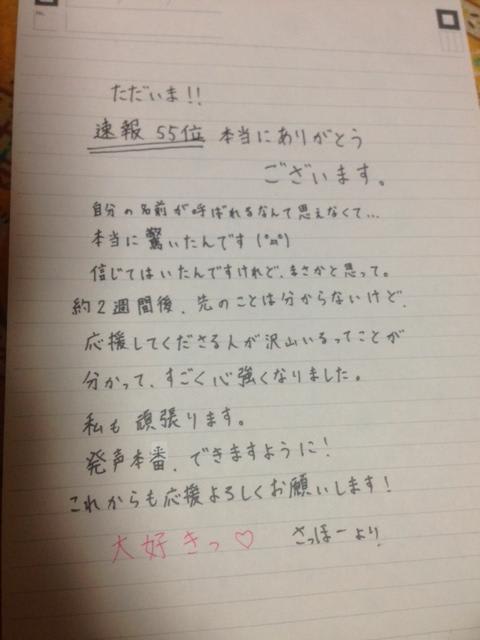 ただいま!!
速報 55位 本当にありがとう
ございます。
自分の名前が呼ばれるなんて思えなくて…
本当に驚いたんです(°д°)
信じてはいたんですけれど、まさかと思って。
約2週間後、先のことは分からないけど、
応援してくださる人が沢山いるってことが
分かって、すごく心強くなりました。
私も頑張ります。
発声本番、できますように!
これからも応援よろしくお願いします!
大好きっ♡ さっほーより